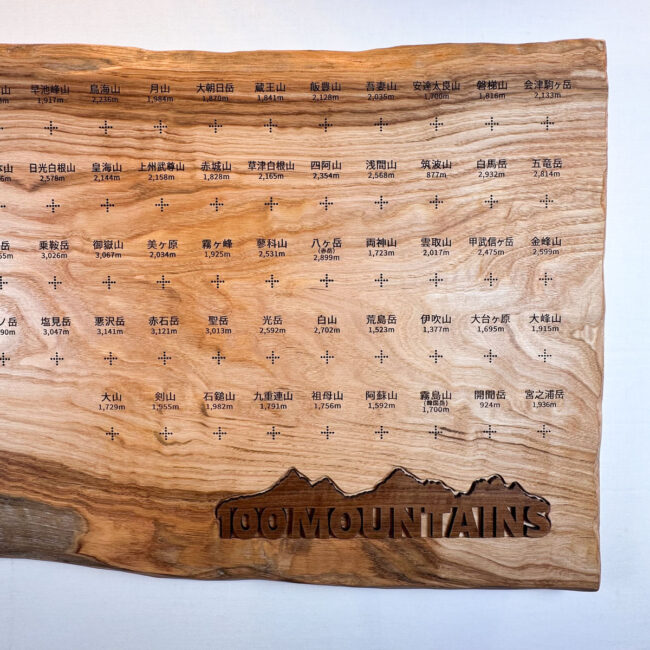 山 早池峰山 鳥海山 月山 大朝日岳 蔵王山 飯豊山 吾妻山 安達太良山 磐梯山 会津駒ヶ岳
m 1,917m 2,236m 1,984m 1,870m 1,841m 2,128m 2,035m 1,700m 1,816m 2,133m
山 日光白根山 皇海山 上州武尊山 赤城山 草津白根山 四阿山 浅間山 筑波山 白馬岳 五竜岳
6m 2,578m 2,144m 2,158m 1,828m 2,165m 2,354m 2,568m 877m 2,932m 2,814m
岳 乗鞍岳 御嶽山 美ヶ原 霧ヶ峰 蓼科山 八ヶ岳 両神山 雲取山 甲武信ヶ岳 金峰山
(赤岳)
55m 3,026m 3,067m 2,034m 1,925m 2,531m 2,899m 1,723m 2,017m 2,475m 2,599m
ノ岳 塩見岳 悪沢岳 赤石岳 聖岳 光岳 白山 荒島岳 伊吹山 大台ヶ原 大峰山
90m 3,047m 3,141m 3,121m 3,013m 2,592m 2,702m 1,523m 1,377m 1,695m 1,915m
大山 剣山 石鎚山 九重連山 祖母山 阿蘇山 霧島山 開聞岳 宮之浦岳
(韓国岳)
1,729m 1,955m 1,982m 1,791m 1,756m 1,592m 1,700m 924m 1,936m
100MOUNTAINS